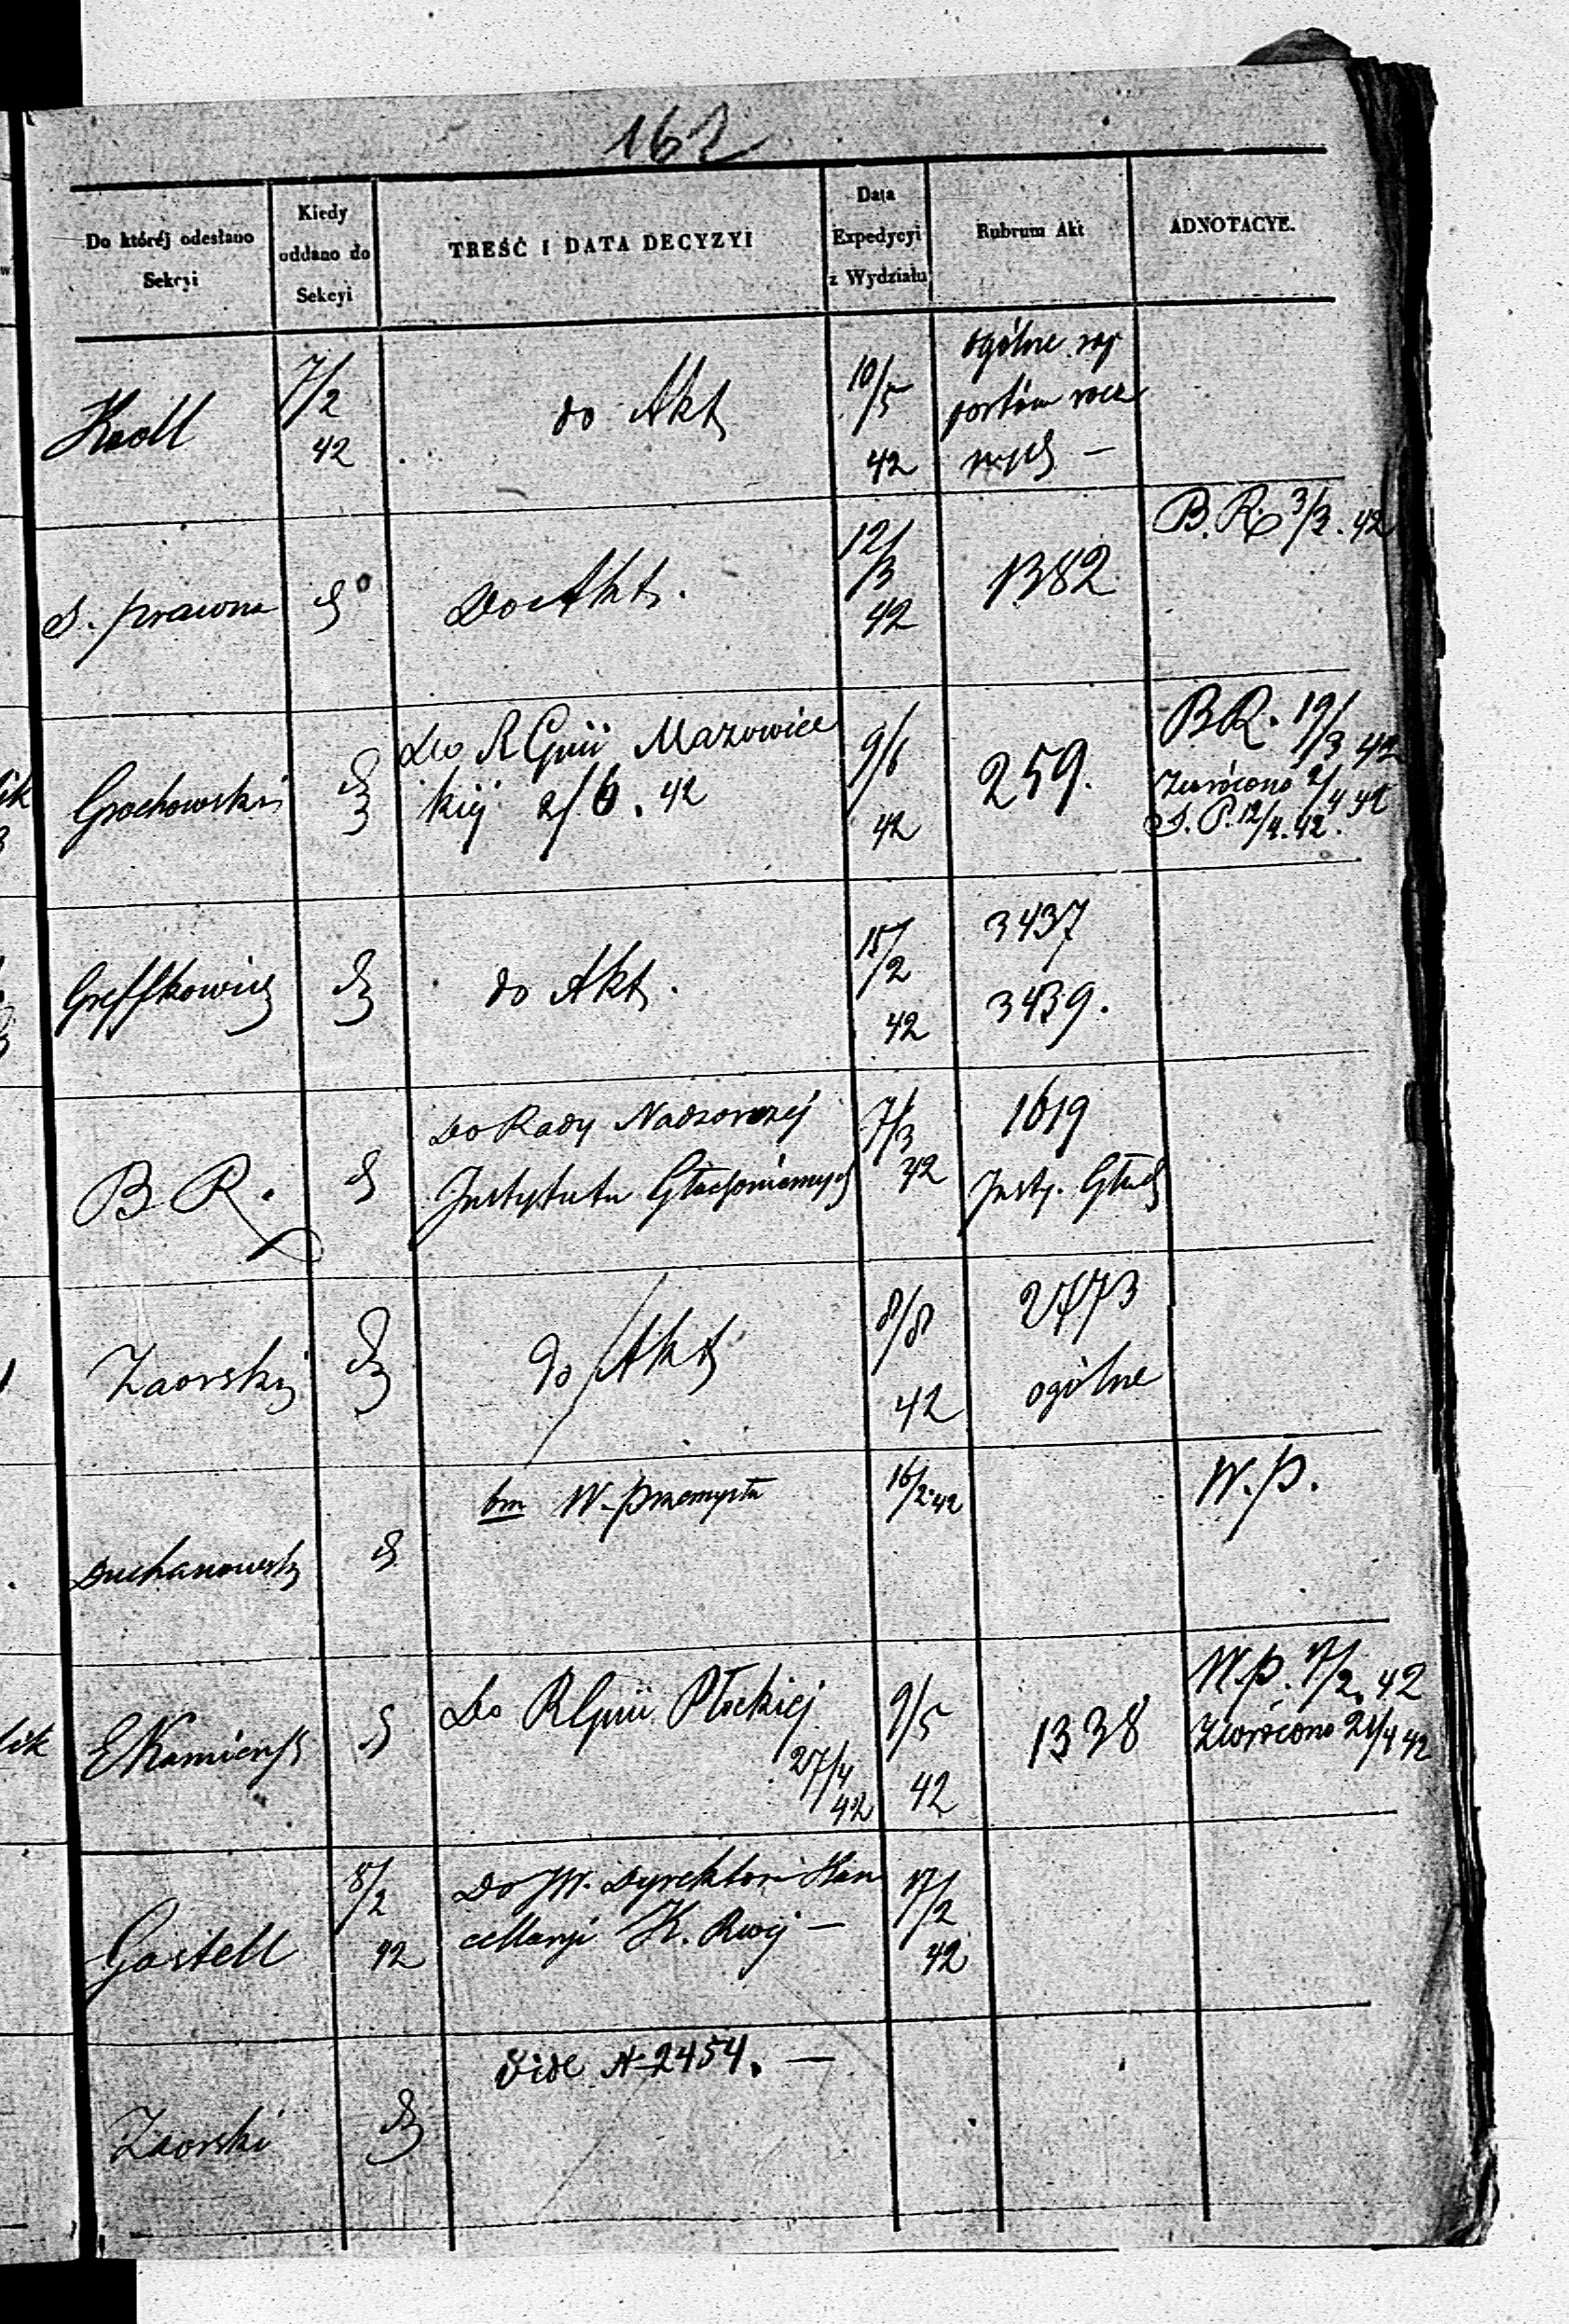 162
Do któréj odesłano
Sekcyi
Kiedy
oddano do
Sekcyi
TREŚĆ I DATA DECYZYI
Data
Expedycyi
z Wydziału
Rubrum Akt
ADNOTACYE.
7/2
42
do Akt
10/5
42
ogólne rap
portów rocz
nych —
S. prawna
do Akt.
12/3
42
1382
B. R. 3/3. 42
Grochowski
Do R Gnii Mazowiec
kiéj 2/6. 42
9/6
42
259.
BR. 19/3 42
Zwrócono 2/4 42
S. P. 12/4. 42.
do Akt.
15/2
42
3437
3439.
B R.
Do Rady Nadzorczéj
Instytutu Głuchoniemych
7/3
42
1619
Insty. Głuch
Zaorski
do Akt
8/8
42
2473
ogólne
bm W. przemysłu
16/2 42
W. p.
EKamieńs
Do RGnii Płockiéj
27/4
42
9/5
42
1338
W. p. 17/2. 42
Zwrócono 21/4 42
Gastell
8/2
42
Do JW. Dyrektora Kan
cellaryi K. Rwéj —
17/2
42
Zaorski
Vide N 2454. —